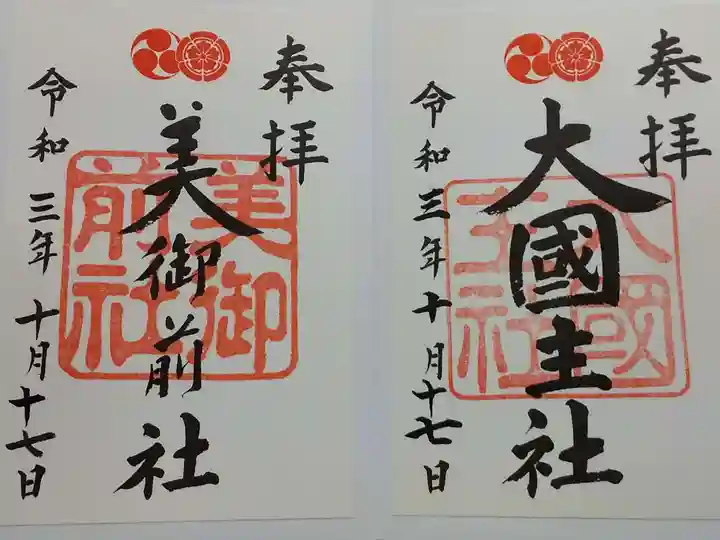 奉拝
美御前社
美御前社
令和三年十月十七日
奉拝
大國主社
大國主社
令和三年十月十七日